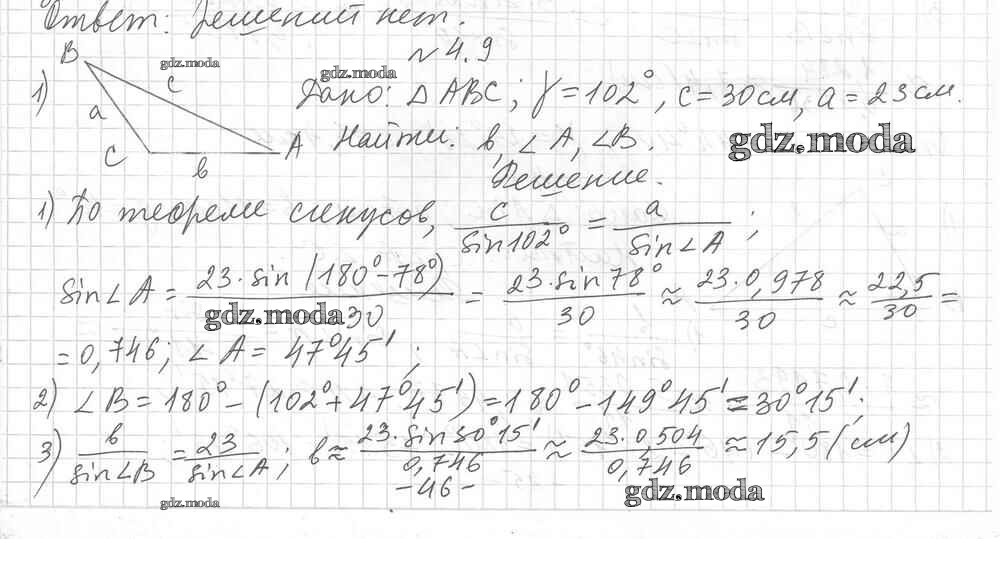 Ответ: Решений нет.
№ 4.9
B gdz.moda
c gdz.moda
1) a Дано: △ABC; γ = 102°, c = 30 см, a = 23 см.
C b A Найти: b, ∠A, ∠B. gdz.moda
Решение.
1) По теореме синусов, c/sin102° = a/sin∠A;
sin∠A = 23·sin(180°-78°)/30 = 23·sin78°/30 ≈ 23·0,978/30 ≈ 22,5/30 =
gdz.moda
= 0,746; ∠A = 47°45';
2) ∠B = 180° - (102° + 47°45') = 180° - 149°45' = 30°15';
3) b/sin∠B = 23/sin∠A; b ≈ 23·sin30°15'/0,746 ≈ 23·0,504/0,746 ≈ 15,5 (см)
- 46 -
gdz.moda gdz.moda